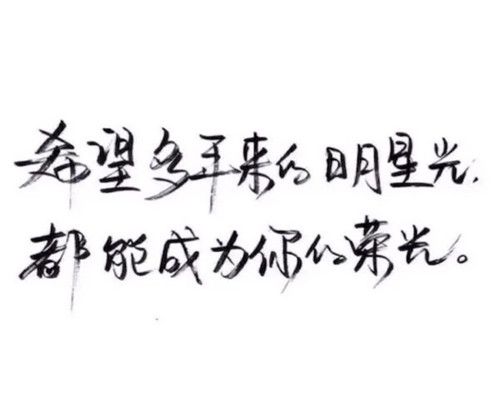 希望多年来的明星光,
都能成为你的荣光。